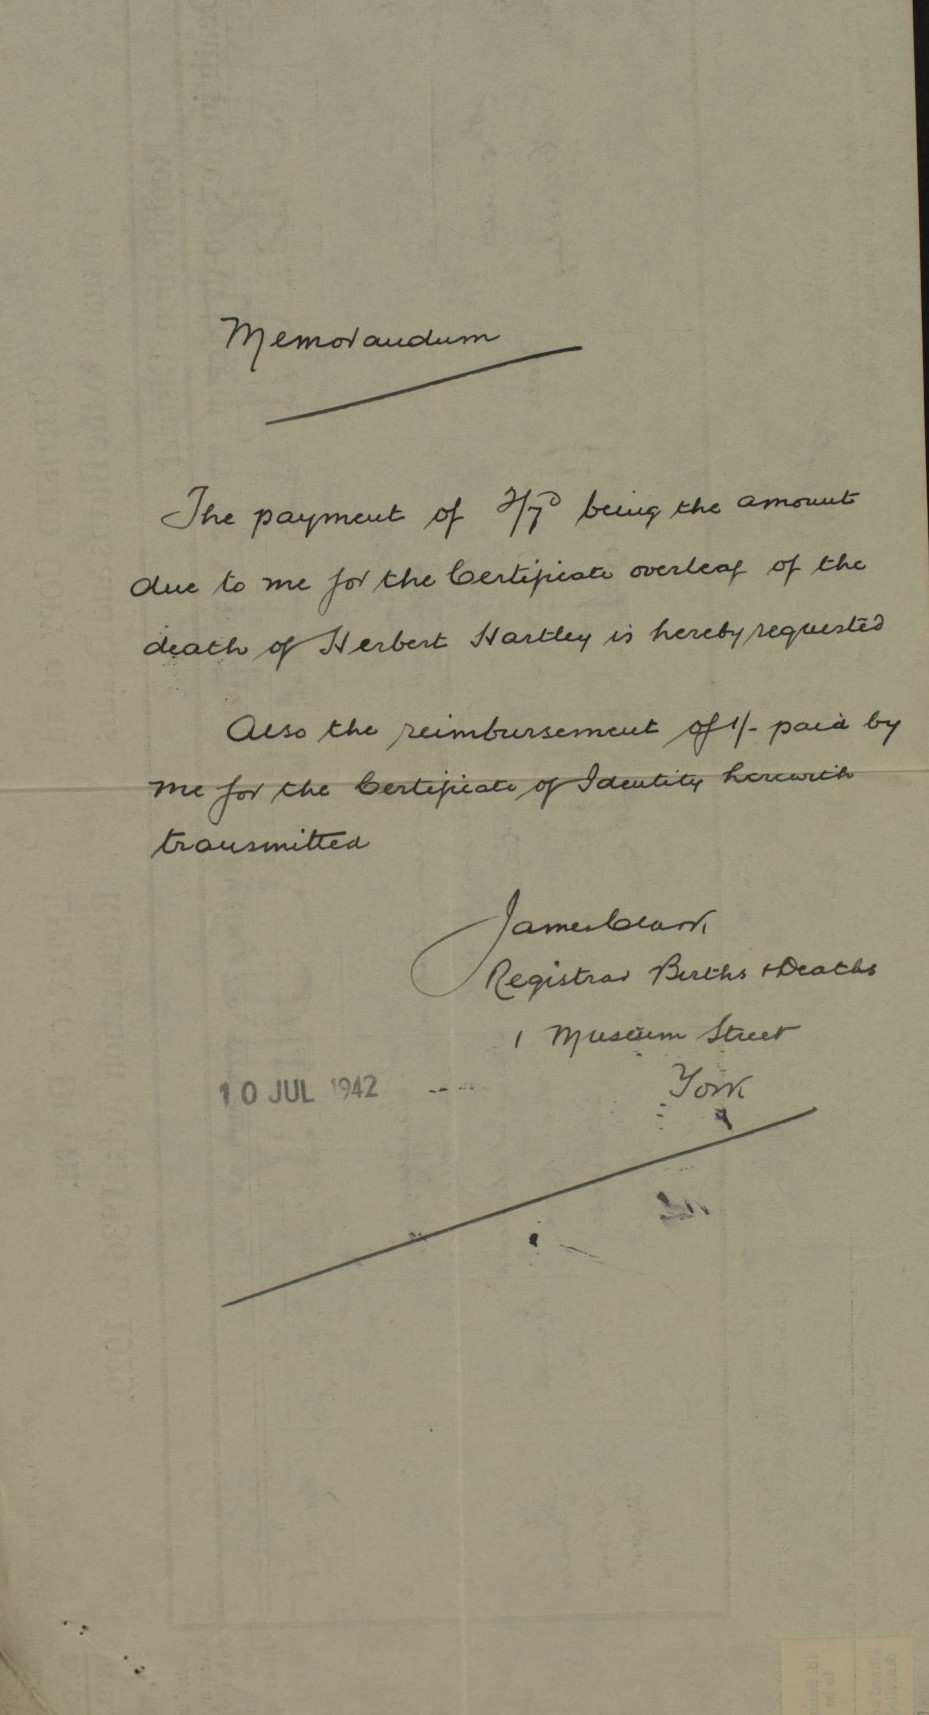 Memorandum
The payment of 2/7D being the amount
due to me for the Certificate overleaf of the
death of Herbert Hartley is hereby requested
Also the reimbursement of 1/- paid by
me for the Certificate of Identity herewith
transmitted
James Clark
Registrar Births & Deaths
1 Museum Street
York
10 JUL 1942